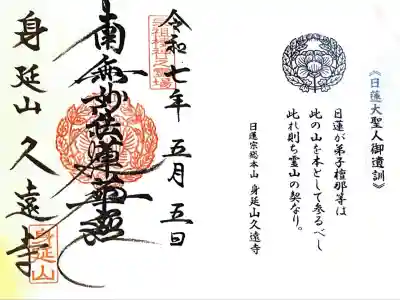 《日蓮大聖人御遺訓》
日蓮が弟子檀那等は
此の山を本として参るべし
此れ則ち霊山の契なり。
日蓮宗総本山 身延山久遠寺
令和七年 五月五日
南無妙法蓮華経
身延山 久遠寺
身延山